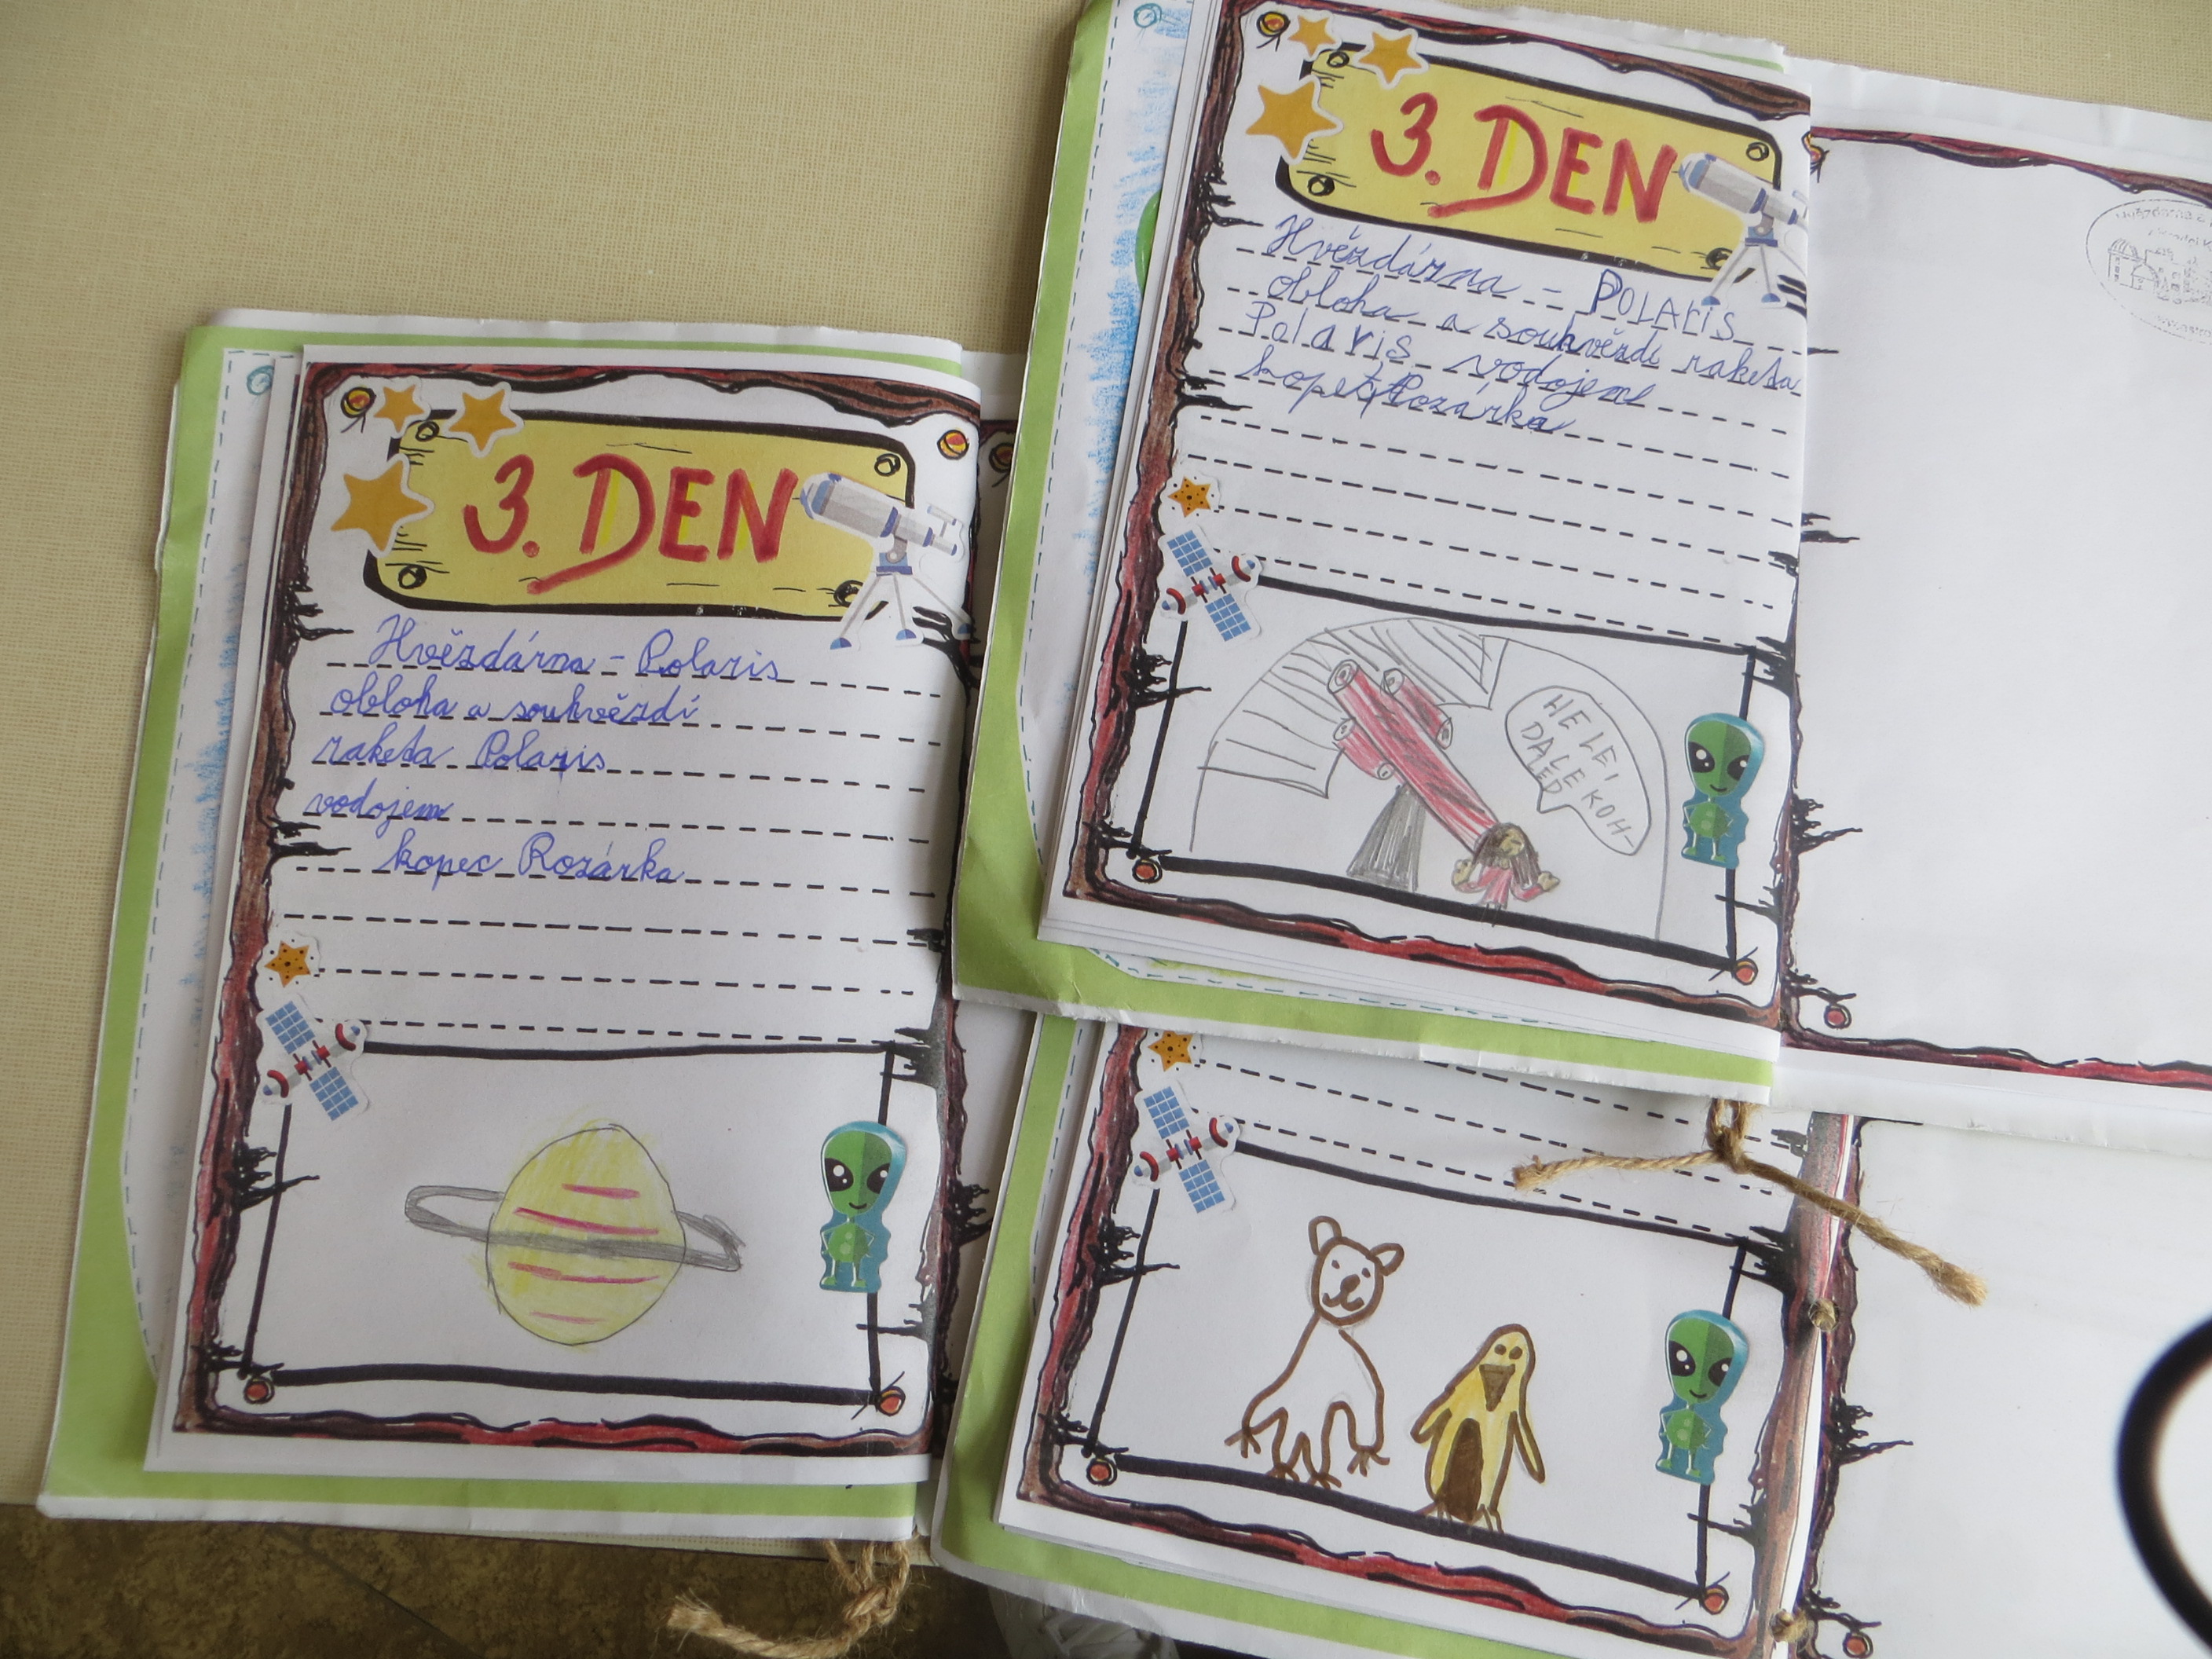 3. DEN
Hvězdárna - Polaris
obloha a souhvězdí
raketa Polaris
vodojem
kopec Rozárka
3. DEN
Hvězdárna - POLARIS
obloha a souhvězdí raketa
Polaris vodojem
kopec Rozárka
HELE,
DALEKOH-
LED